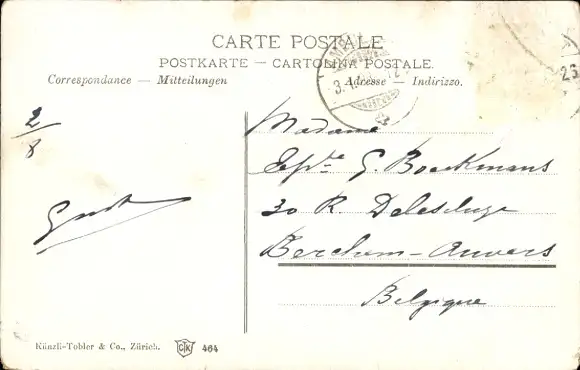 CARTE POSTALE
POSTKARTE — CARTOLINA POSTALE.
Correspondance — Mitteilungen
Adresse — Indirizzo.
2/8
Madame
G. Boeckmans
30 R. Delescluze
Berchem-Anvers
Belgique
Künzli-Tobler & Co., Zürich.
CTK 464